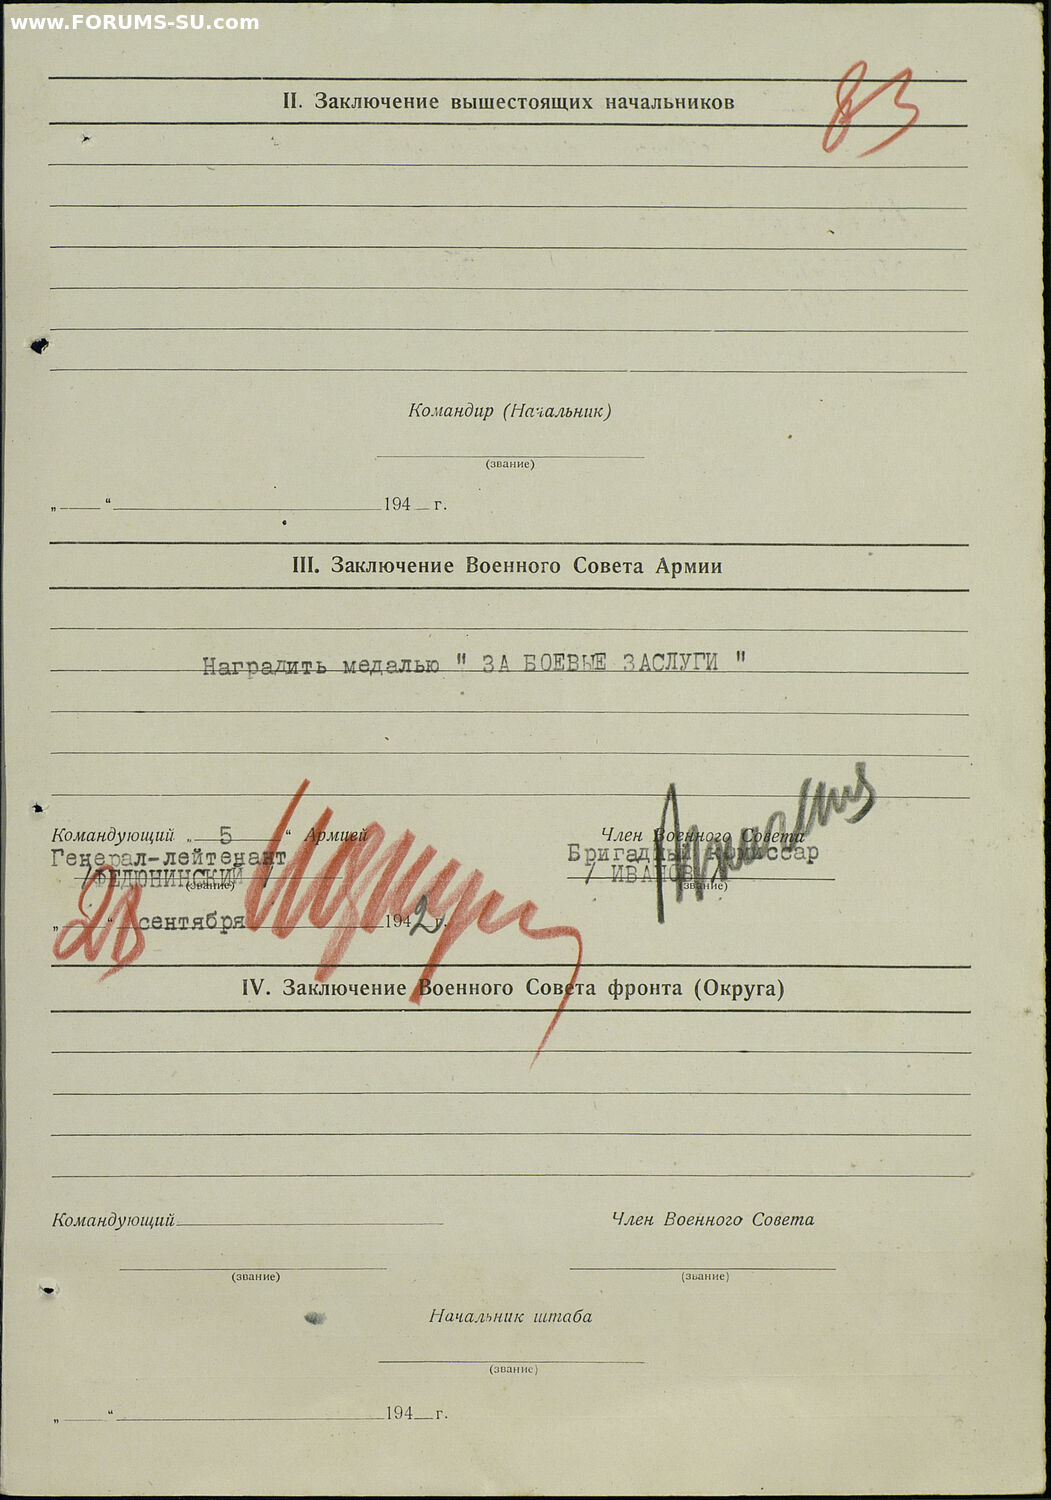 www.FORUMS-SU.com
83
II. Заключение вышестоящих начальников
Командир (Начальник)
(звание)
„ “ 194 г.
III. Заключение Военного Совета Армии
Наградить медалью " ЗА БОЕВЫЕ ЗАСЛУГИ "
Командующий „ 5 “ Армией
Член Военного Совета
Генерал-лейтенант
Бригадный комиссар
/ФЕДЮНИНСКИЙ /
/ ИВАНОВ /
(звание)
(звание)
„28“ сентября 1942 г.
IV. Заключение Военного Совета фронта (Округа)
Командующий
Член Военного Совета
(звание)
(звание)
Начальник штаба
(звание)
„ “ 194 г.